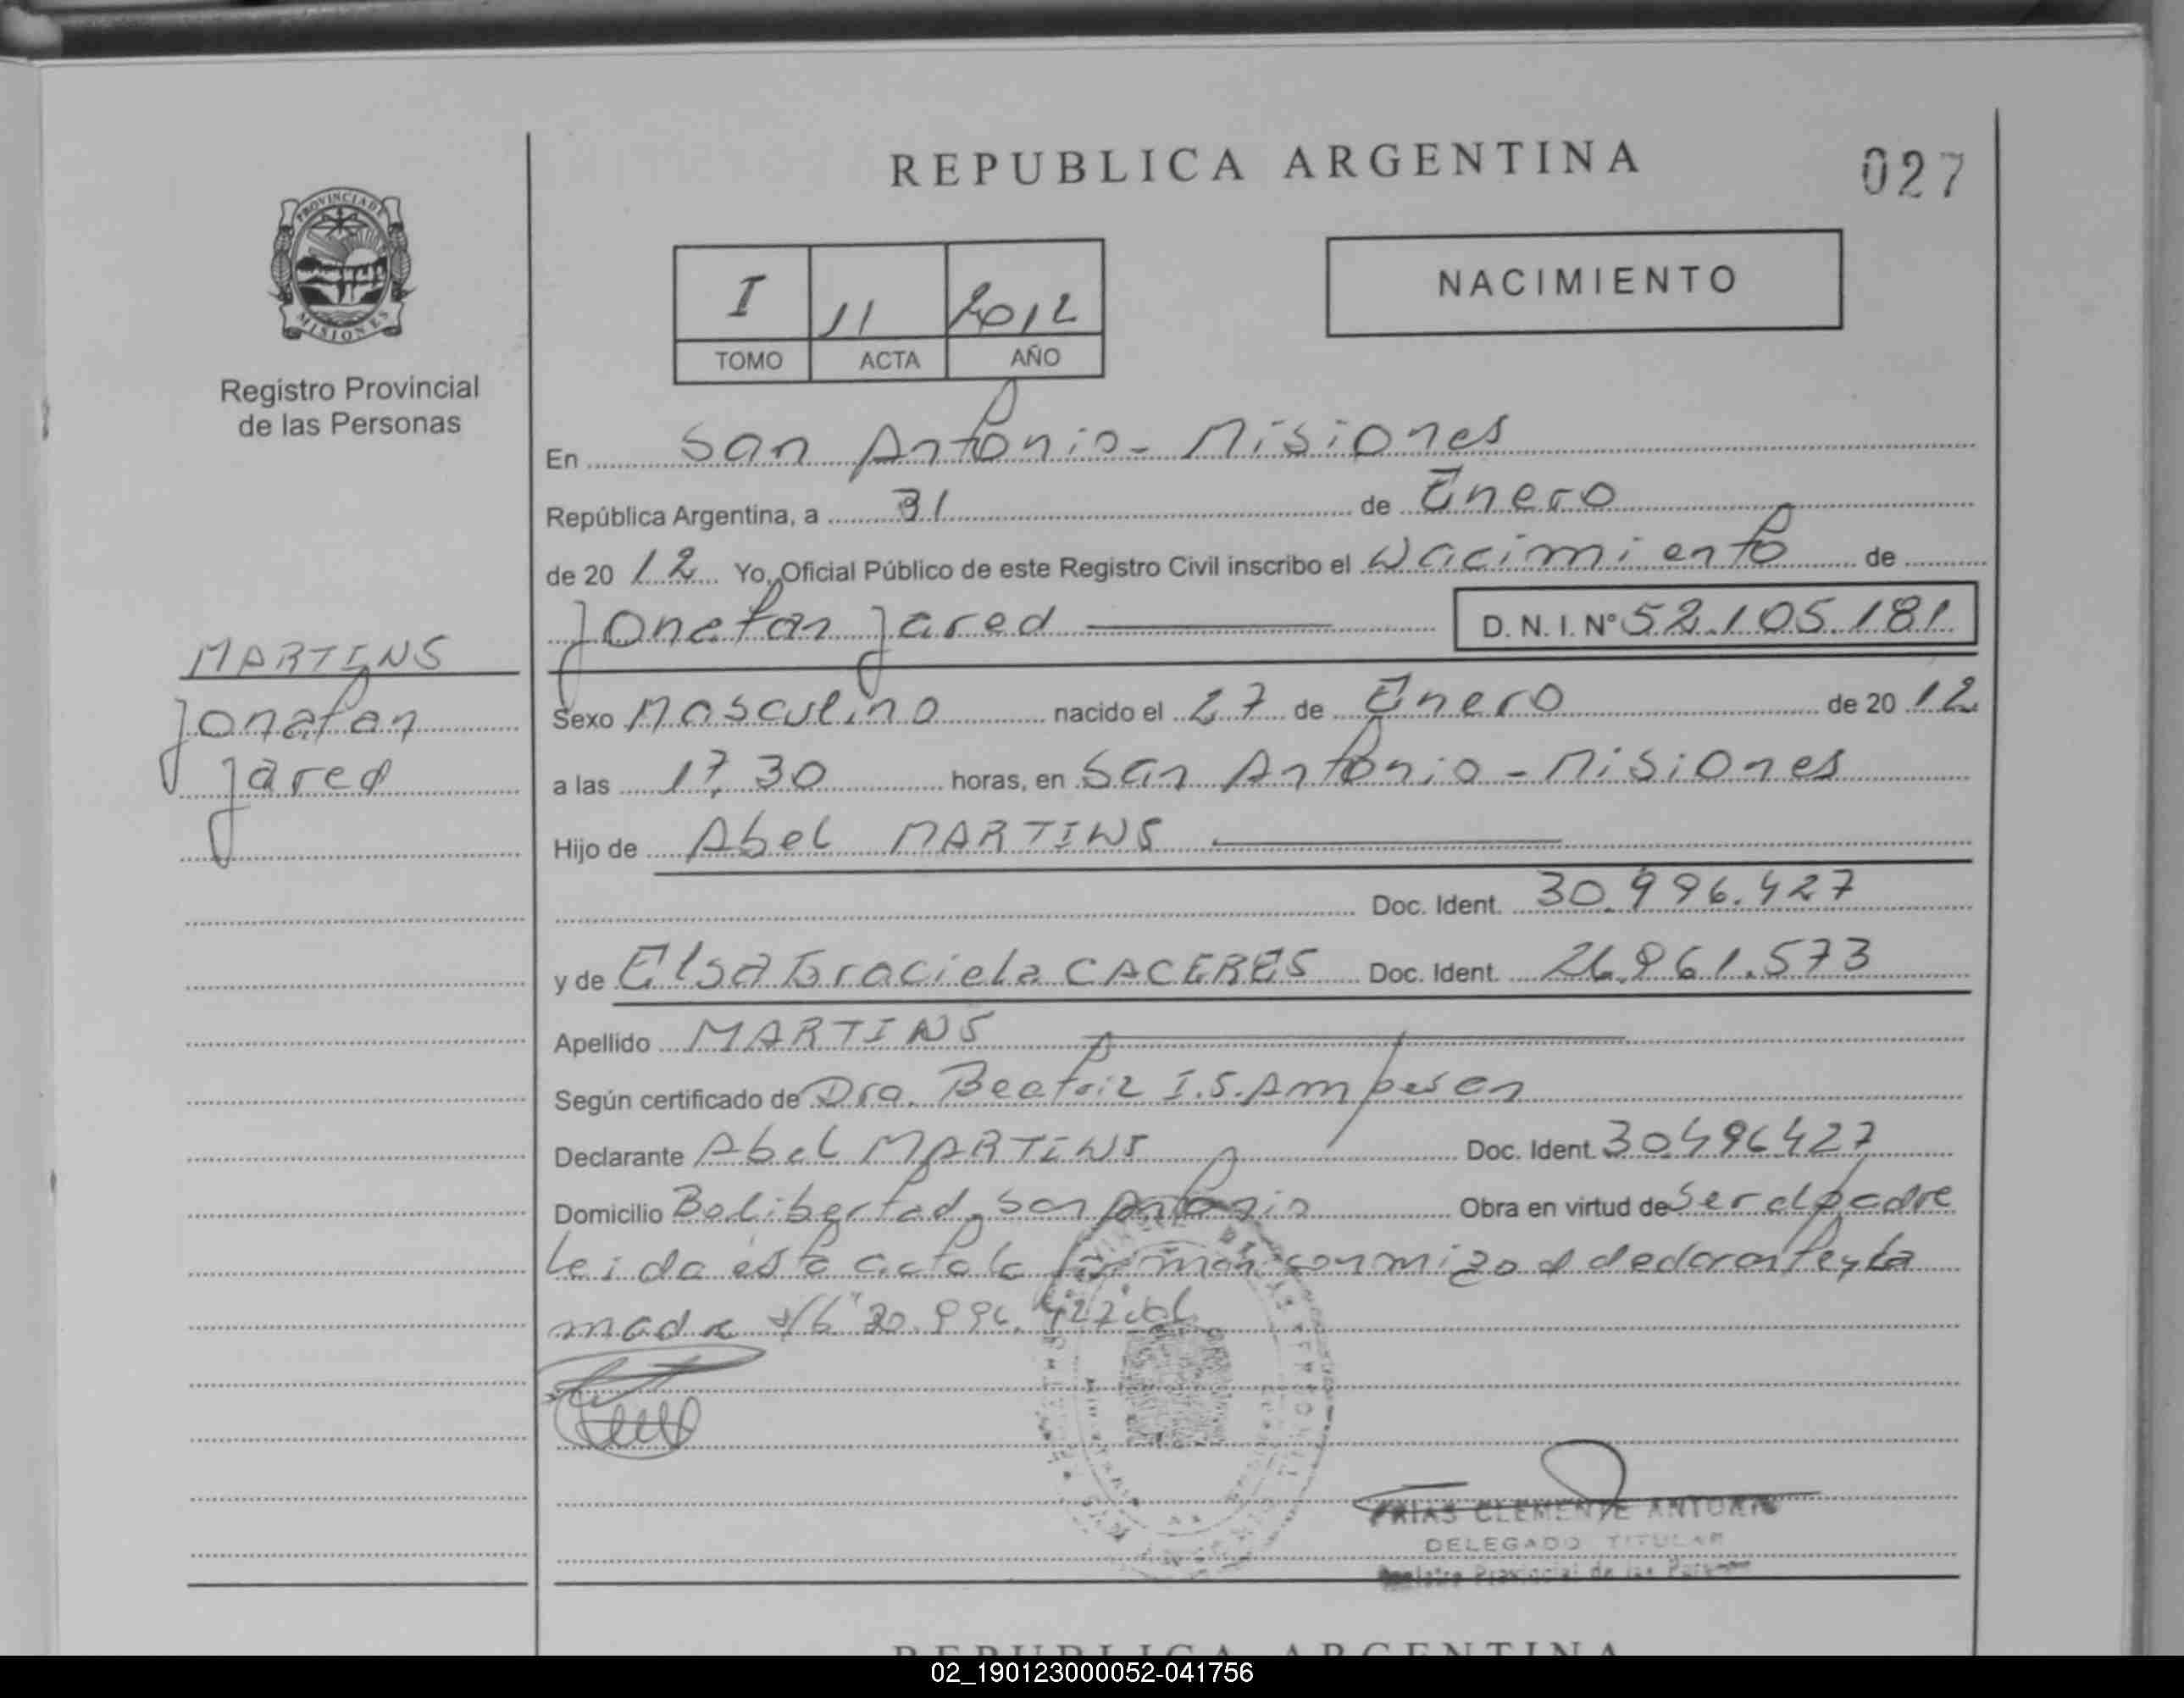 REPUBLICA ARGENTINA
027
PROVINCIA DE
MISIONES
Registro Provincial
de las Personas
I 11 2012
TOMO ACTA AÑO
NACIMIENTO
En San Antonio - Misiones
República Argentina, a 31 de Enero
de 20 12 Yo, Oficial Público de este Registro Civil inscribo el Nacimiento de
Jonatan Jared D. N. I. Nº 52.105.181
MARTINS
Jonatan
Jared
Sexo Masculino nacido el 27 de Enero de 20 12
a las 17,30 horas, en San Antonio - Misiones
Hijo de Abel MARTINS
Doc. Ident. 30.996.427
y de Elsa Graciela CACERES Doc. Ident. 26.961.573
Apellido MARTINS
Según certificado de Dra. Beatriz I.S.
Declarante Abel MARTINS Doc. Ident. 30496427
Domicilio Bo libertad, San Antonio Obra en virtud de Ser el padre
leida esta acta la firman conmigo el declarante y la
madre
FRIAS CLEMENTE ANTONIO
DELEGADO TITULAR
Registro Provincial de las Personas
REPUBLICA ARGENTINA
02_190123000052-041756